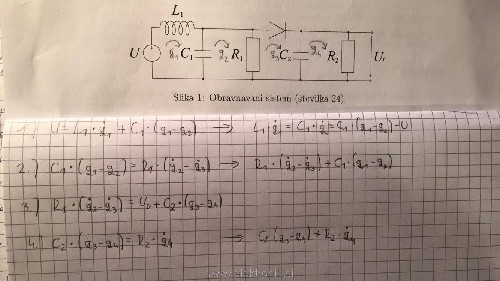 L₁
U
q₁
C₁
q₂
R₁
q₃
C₂
q₄
R₂
U₁
Slika 1: Obravnavani sistem (številka 24)
1.) U = L₁·q̈₁ + C₁·(q₁-q₂) →
2.) C₁·(q₁-q₂) = R₁·(q̇₂-q̇₃) → R₁·(q̇₂-q̇₃) + C₁·(q₁-q₂)
3.) R₁·(q̇₂-q̇₃) = U₀ + C₂·(q₃-q₄)
4.) C₂·(q₃-q₄) = R₂·q̇₄ → C₂(q₃-q₄) + R₂·q̇₄